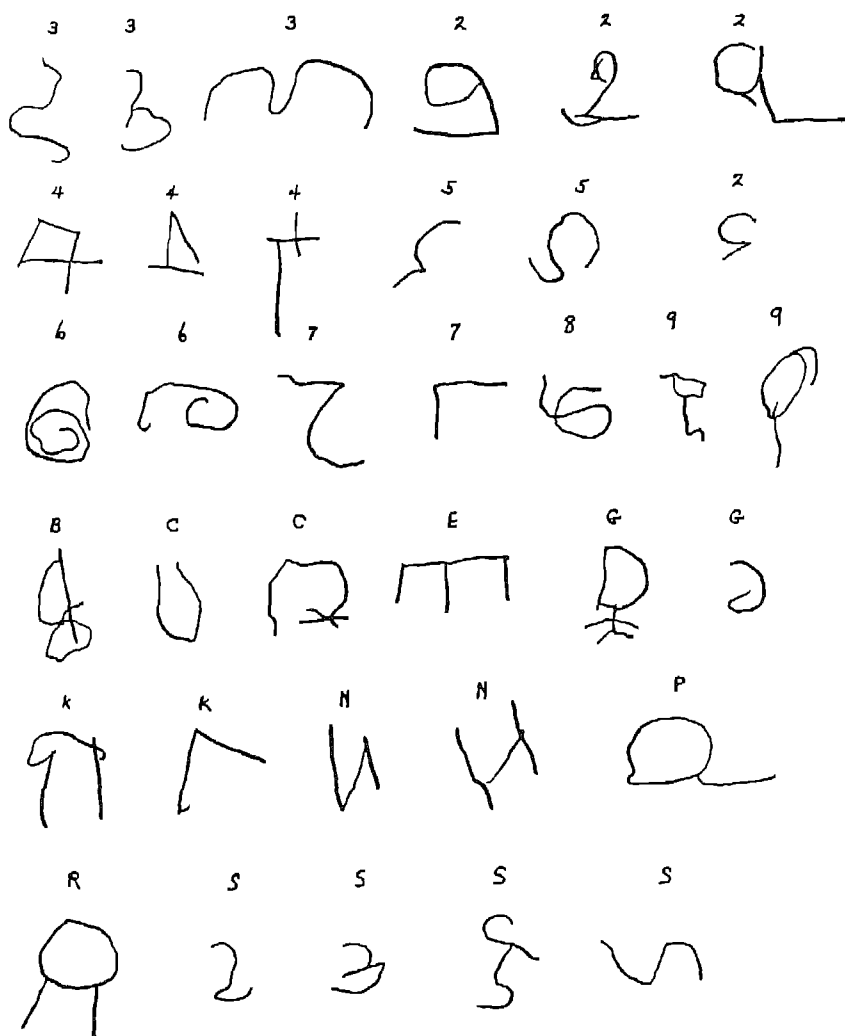 3 3 3 2 2 2
4 4 4 5 5 2
6 6 7 7 8 9 9
B C C E G G
K K N N P
R S S S S